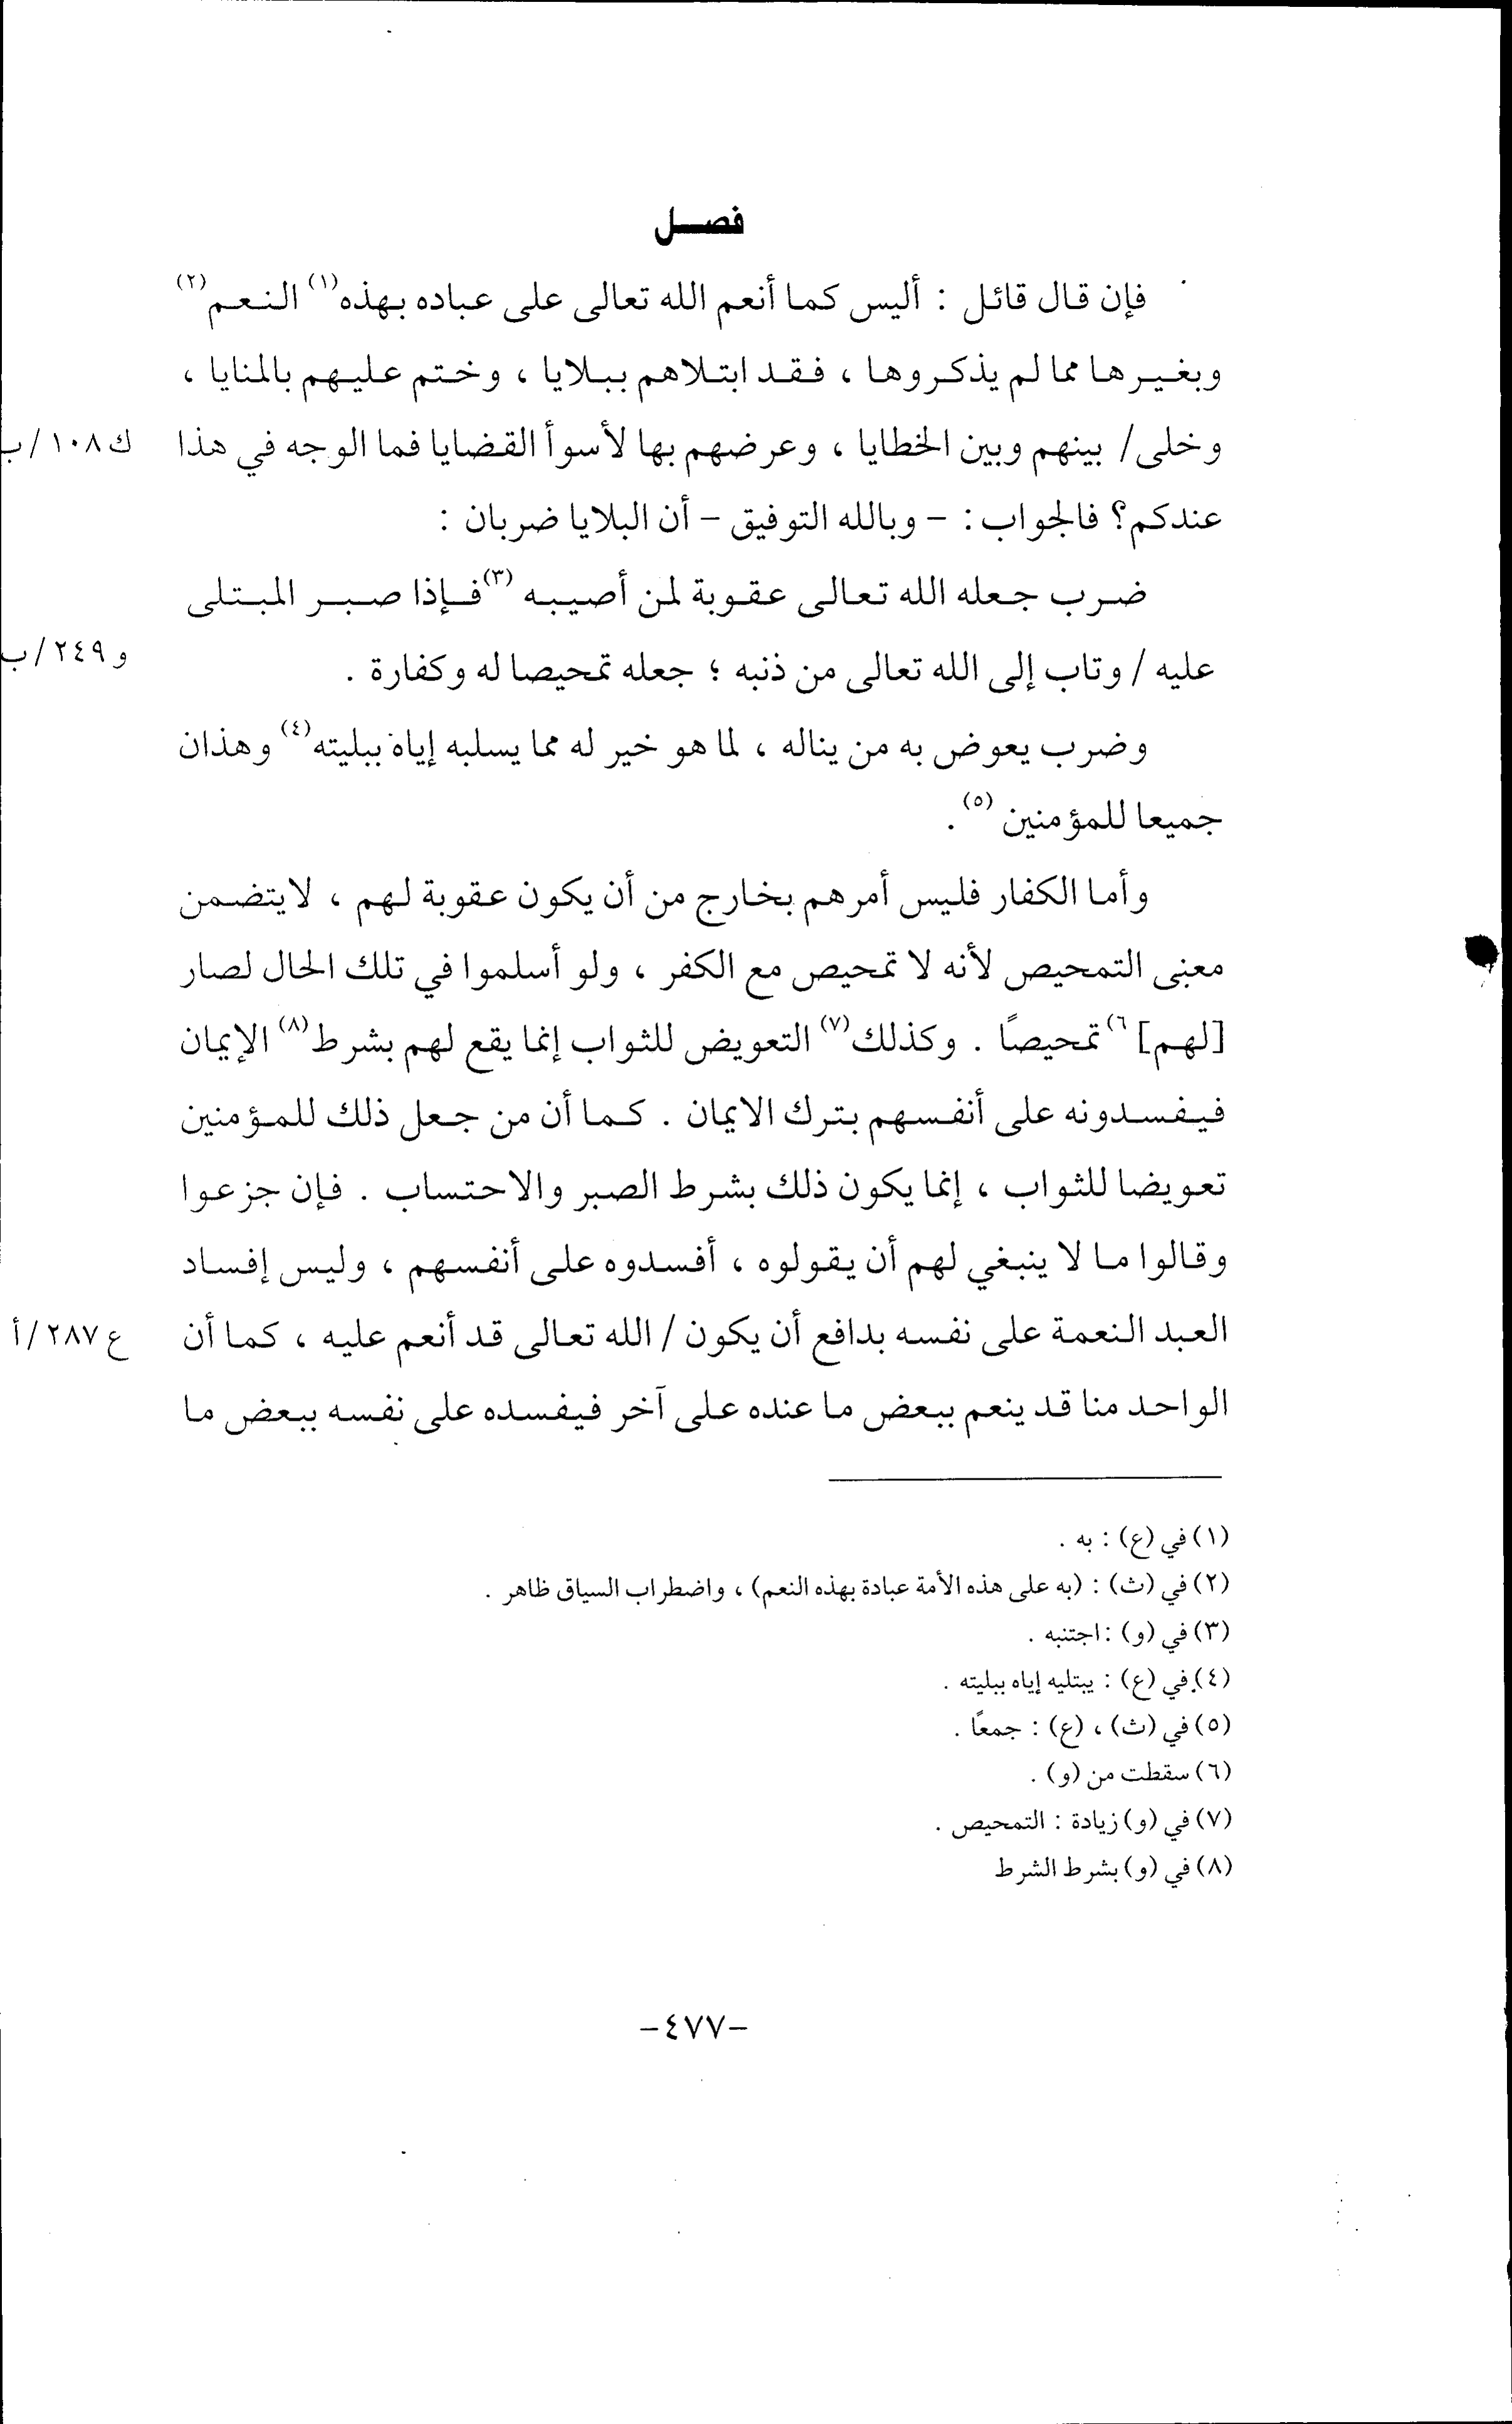 فصــل
فإن قال قائل : أليس كما أنعم الله تعالى على عباده بهذه(١) النعم(٢)
وبغيرها مما لم يذكروها ، فقد ابتلاهم ببلايا ، وختم عليهم بالمنايا ،
وخلى/ بينهم وبين الخطايا ، وعرضهم بها لأسوأ القضايا فما الوجه في هذا
ك١٠٨/ب
عندكم؟ فالجواب : – وبالله التوفيق – أن البلايا ضربان :
ضرب جعله الله تعالى عقوبة لمن أصيبه (٣)فإذا صبر المبتلى
عليه / وتاب إلى الله تعالى من ذنبه ؛ جعله تمحيصا له وكفارة .
و٢٤٩/ب
وضرب يعوض به من يناله ، لما هو خير له مما يسلبه إياه ببليته(٤) وهذان
جميعا للمؤمنين (٥).
وأما الكفار فليس أمرهم بخارج من أن يكون عقوبة لهم ، لايتضمن
معنى التمحيص لأنه لا تمحيص مع الكفر ، ولو أسلموا في تلك الحال لصار
[لهم] ٦) تمحيصًا . وكذلك(٧) التعويض للثواب إنما يقع لهم بشرط(٨) الإيمان
فيفسدونه على أنفسهم بترك الايمان . كما أن من جعل ذلك للمؤمنين
تعويضا للثواب ، إنما يكون ذلك بشرط الصبر والاحتساب . فإن جزعوا
وقالوا ما لا ينبغي لهم أن يقولوه ، أفسدوه على أنفسهم ، وليس إفساد
العبد النعمة على نفسه بدافع أن يكون / الله تعالى قد أنعم عليه ، كما أن
ع٢٨٧/أ
الواحد منا قد ينعم ببعض ما عنده على آخر فيفسده على نفسه ببعض ما
(١) في (ع) : به .
(٢) في (ث) : (به على هذه الأمة عبادة بهذه النعم) ، واضطراب السياق ظاهر .
(٣) في (و) : اجتنبه .
(٤) في (ع) : يبتليه إياه ببليته .
(٥) في (ث) ، (ع) : جمعًا .
(٦) سقطت من (و) .
(٧) في (و) زيادة : التمحيص .
(٨) في (و) بشرط الشرط
–٤٧٧–